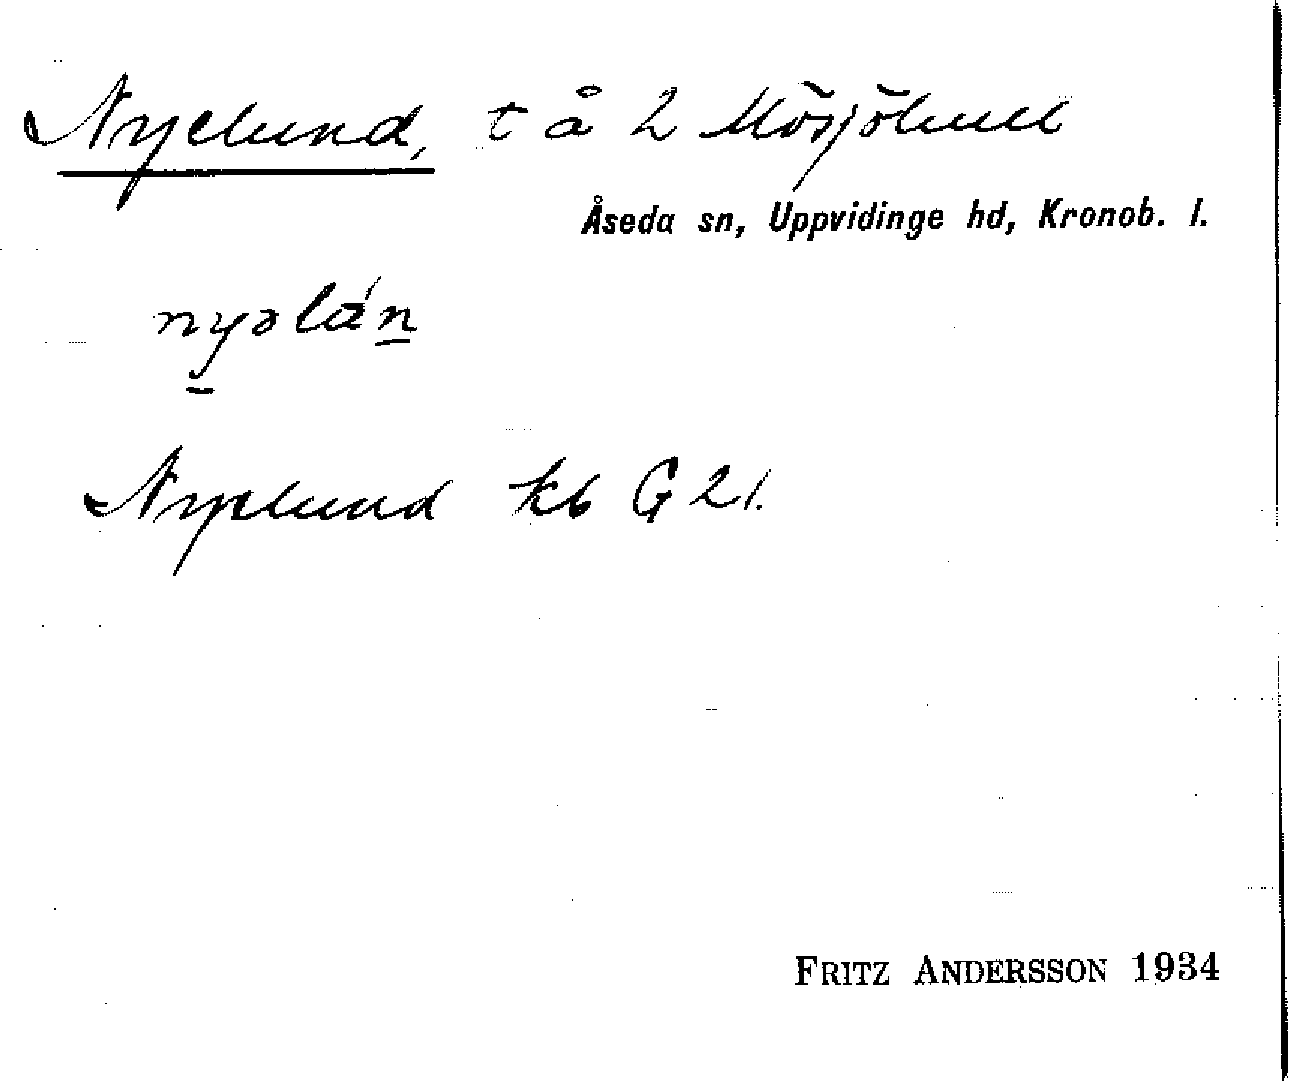 Nyelund, t å 2 Mösjöhult
Åseda sn, Uppvidinge hd, Kronob. l.
nyəlán
Nyelund kb G 21.
FRITZ ANDERSSON 1934